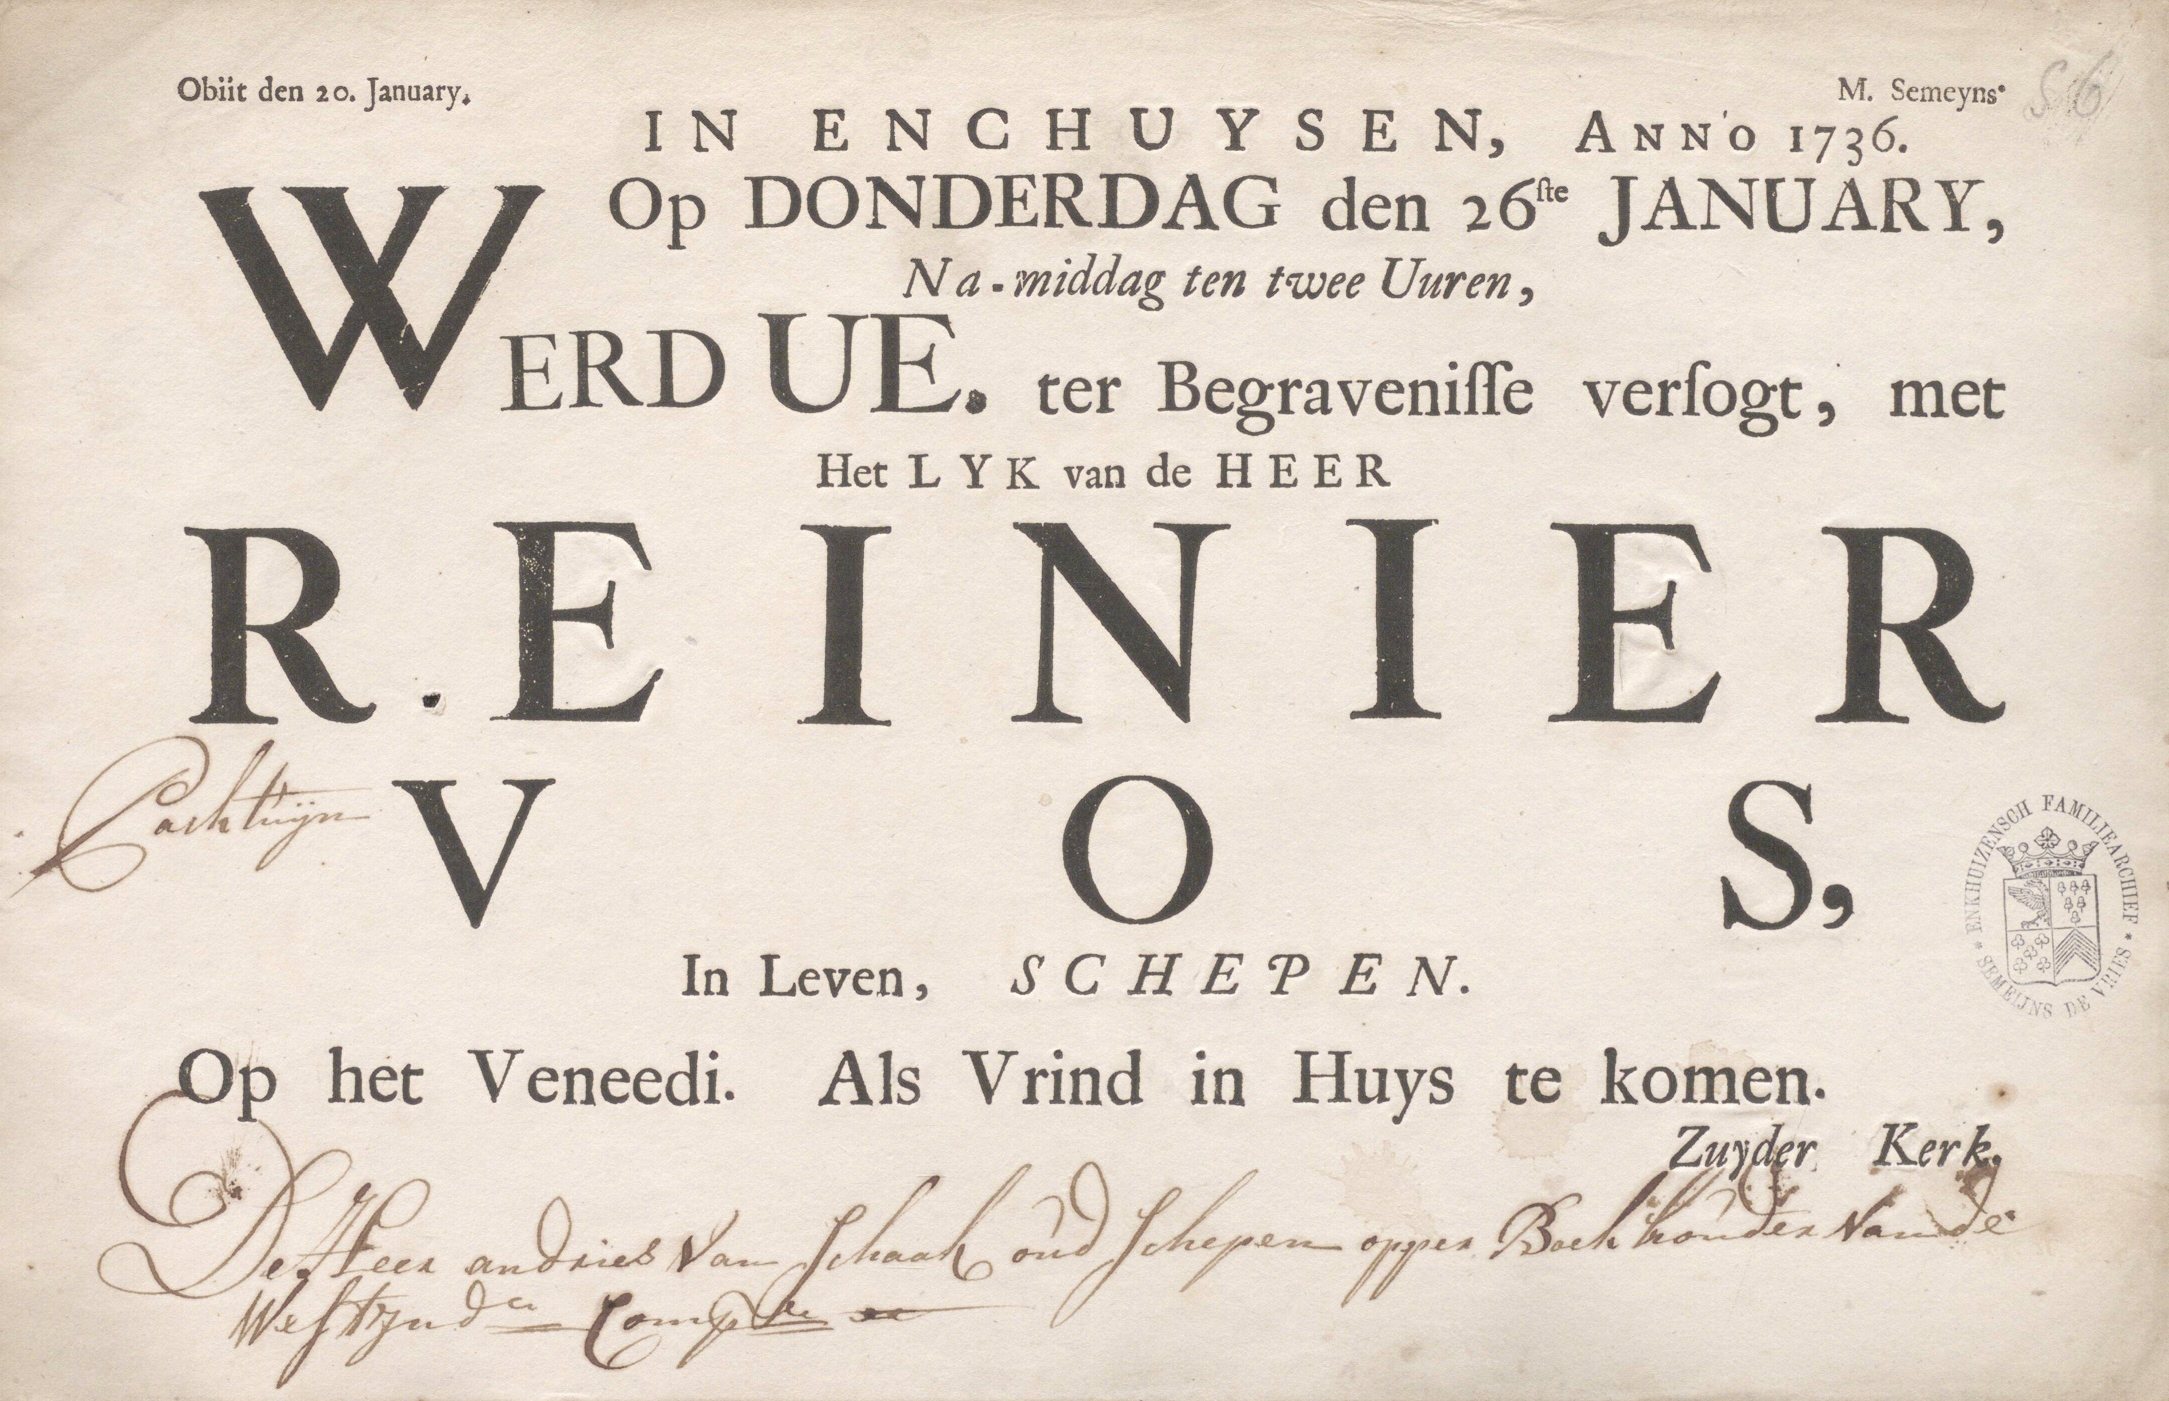 Obiit den 20. January.
M. Semeyns.
56
IN ENCHUYSEN, ANNO 1736.
Op DONDERDAG den 26ſte JANUARY,
Na-middag ten twee Uuren,
WERD UE. ter Begraveniſſe verſogt, met
Het LYK van de HEER
REINIER
VOS,
In Leven, SCHEPEN.
Op het Veneedi. Als Vrind in Huys te komen.
Zuyder Kerk.
De Heer andries Van Schaak oud Schepen opper Boekhouder Van de
Westynd Comp
ENKHUIZENSCH FAMILIEARCHIEF * SEMEIJNS DE VRIES *